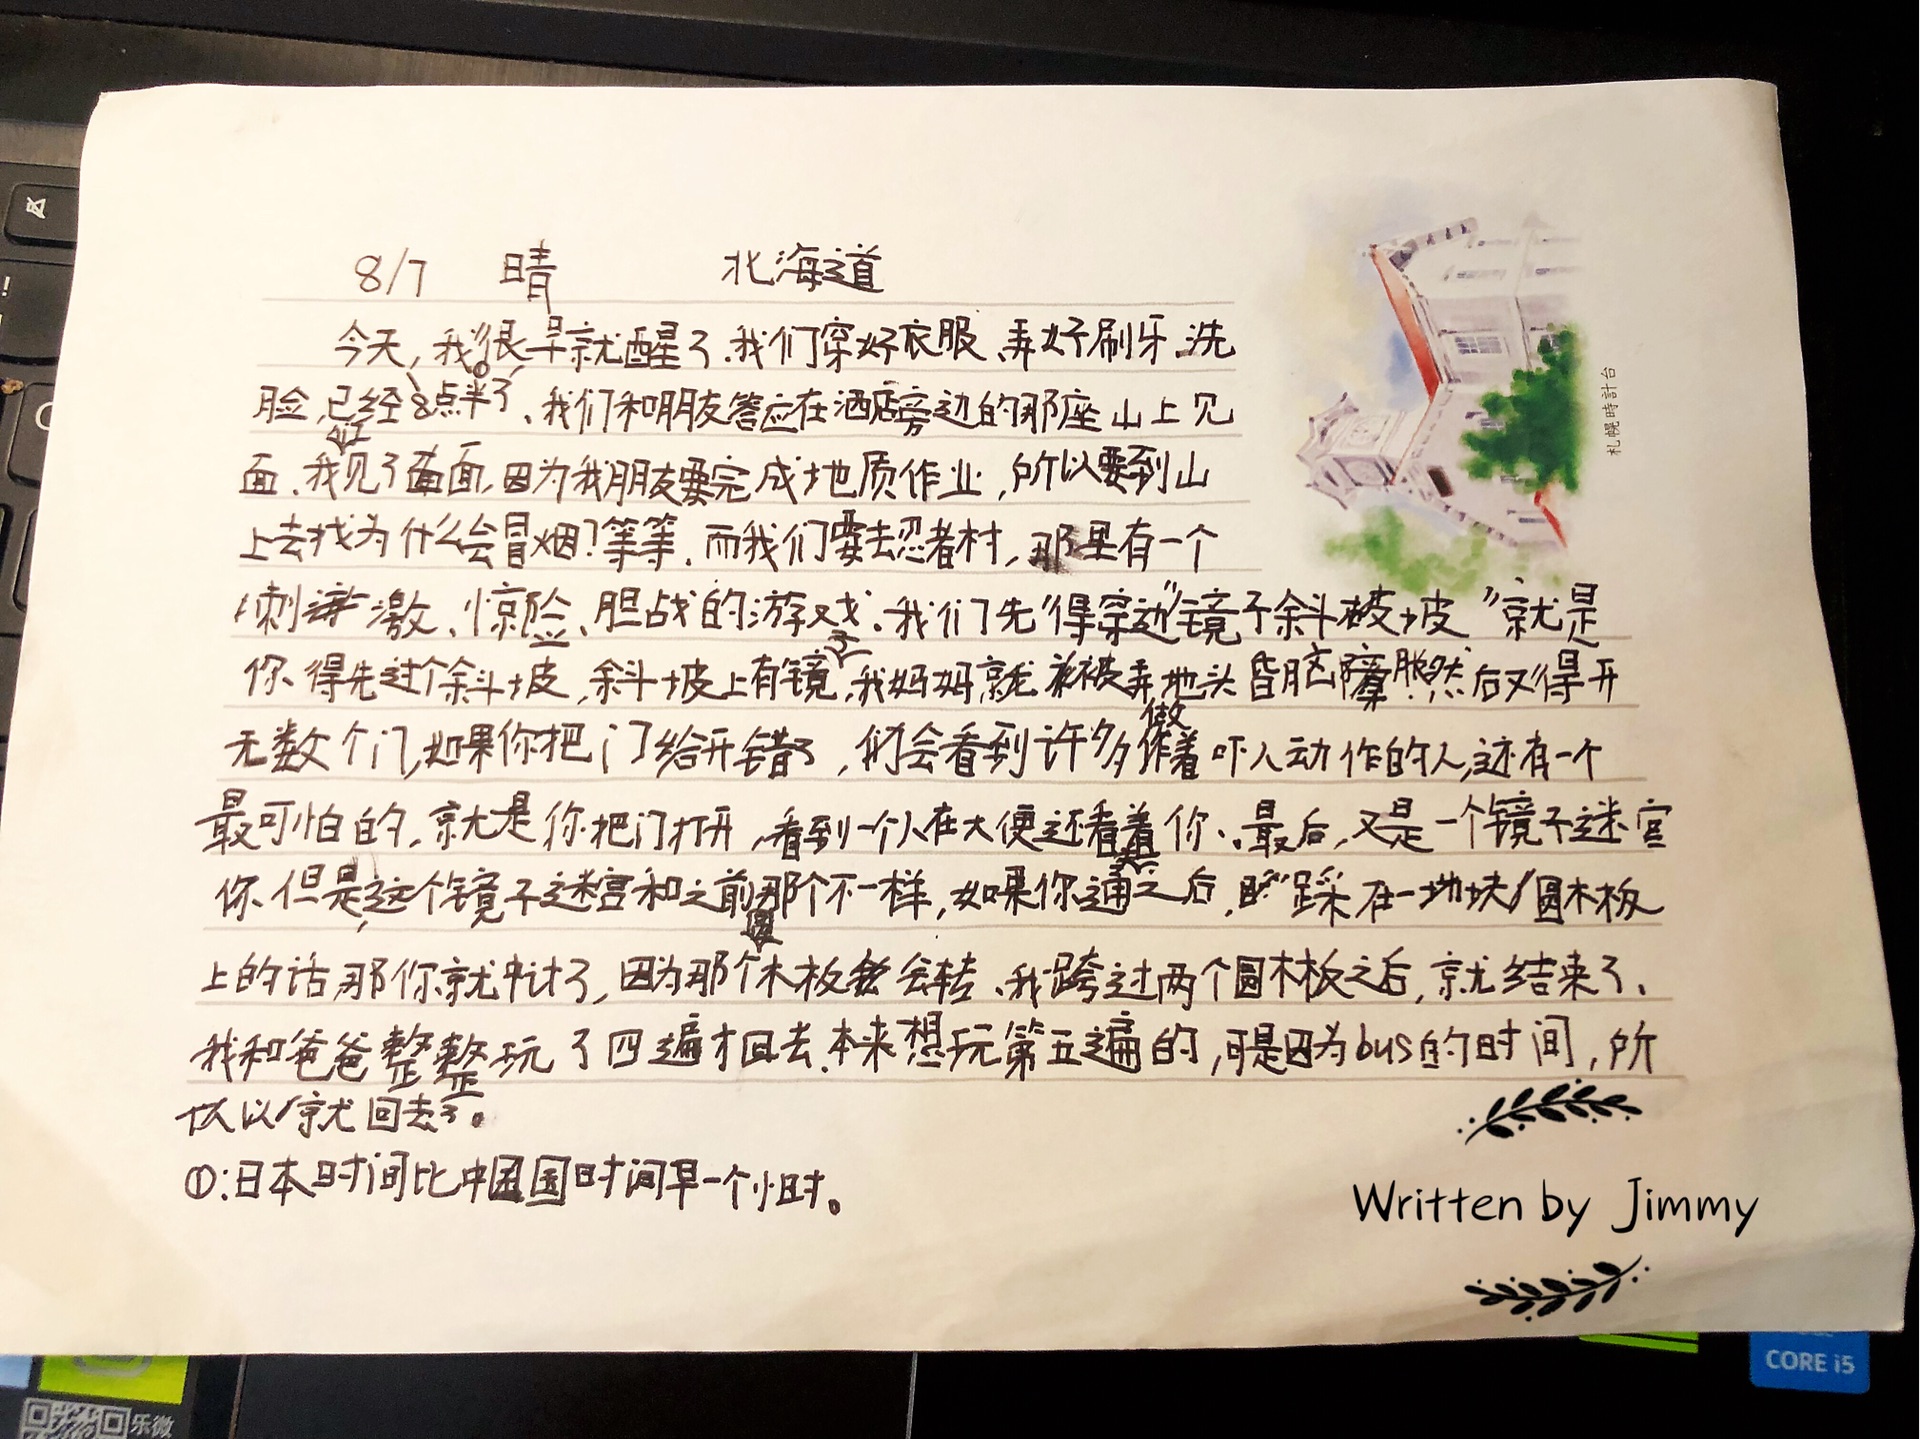 8/7 晴 北海道
今天,我很早就醒了.我们穿好衣服、弄好刷牙、洗
脸,已经8点半了、我们和朋友答应在酒店旁边的那座山上见
面.我们见了面,因为我朋友要完成地质作业,所以要到山
上去找为什么会冒烟?等等.而我们要去忍者村,那里有一个
刺激、惊险、胆战的游戏.我们先得穿过"镜子斜坡"就是
你得先过个斜坡,斜坡上有镜子,我妈妈就被弄地头昏脑胀然后又得开
无数个门,如果你把门给开错了,你会看到许多做着吓人动作的人,还有一个
最可怕的,就是你把门打开,看到一个人在大便还看着你、最后,又是一个镜子迷宫
你.但是,这个镜子迷宫和之前那个不一样,如果你通关之后,踩在一块圆木板
上的话,那你就中计了,因为那个圆木板会转、我跨过两个圆木板之后,就结束了、
我和爸爸整整玩了四遍才回去.本来想玩第五遍的,可是因为bus的时间,所
以就回去了。
①:日本时间比中国时间早一个小时。
札幌時計台
Written by Jimmy
CORE i5
乐微